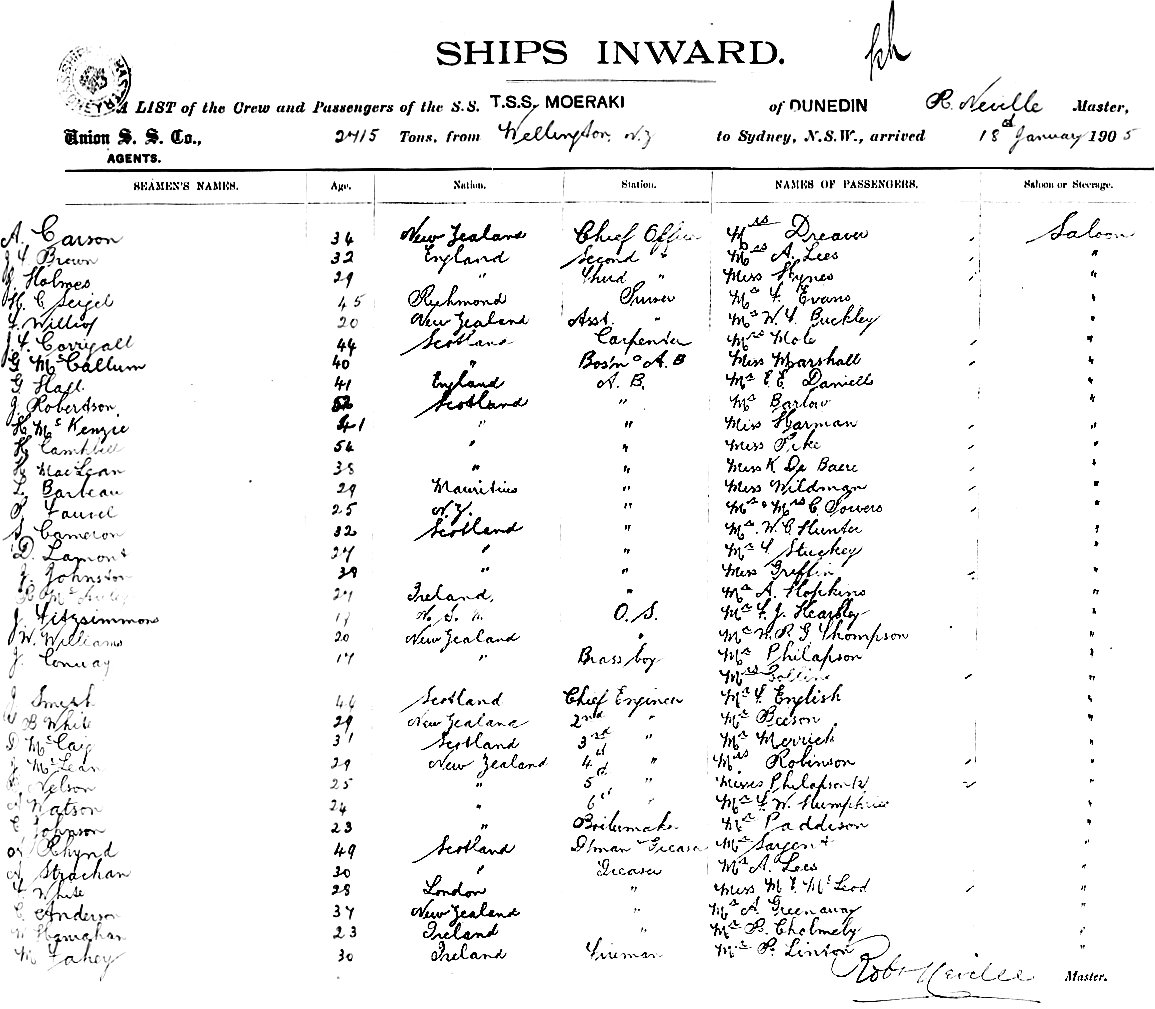 SHIPS INWARD.
A LIST of the Crew and Passengers of the S.S. T.S.S. MOERAKI of DUNEDIN R. Neville Master,
Union S. S. Co., 2415 Tons, from Wellington, N.Z to Sydney, N.S.W., arrived 18 January 1905
AGENTS.
SEAMEN'S NAMES. Age. Nation. Station. NAMES OF PASSENGERS. Saloon or Steerage.
A. Carson 34 New Zealand Chief Officer Mrs Dreaver Saloon
Brown 32 England Second " Mrs A. Lees "
Holmes 29 " Third " Miss Hynes "
H. C. Seigel 45 Richmond Purser Mr F. Evans "
20 New Zealand Asst. " Mr W. F. Buckley "
Corrigall 44 Scotland Carpenter Mrs Mole "
McCallum 40 " Bos'n A.B Miss Marshall "
Hall 41 England A.B. Mr E. E. Daniells "
J. Robertson 52 Scotland " Mr Barlow "
McKenzie 41 " " Miss Harman "
Campbell 54 " " Miss Pike "
MacLean 38 " " Miss K De Baere "
Barbeau 29 Mauritius " Miss Wildman "
25 N.Z. " Mr & Mrs C Sowers "
Cameron 32 Scotland " Mr. W. C Hunter "
D. Lamont 27 " " Mr F Stuckey "
J. Johnston 39 " " Miss Griffin "
27 Ireland, " Mr A. Hopkins "
J. Fitzsimmons 19 N.S.W. O.S. Mr F. J. "
W. Williams 20 New Zealand " Mr W. R. G Thompson "
J. Conway 17 " Brass boy Mr Philapson "
Mrs Collins "
J Smith 44 Scotland Chief Engineer Mr F. English "
B White 29 New Zealand 2nd " Mr Beeson "
D McCaig 31 Scotland 3rd " Mr Merrick "
McLean 29 New Zealand 4th " Mrs Robinson "
Nelson 25 " 5th " Misses Philapson (2) "
Watson 24 " 6th " Mr F. W. Humphries "
C Johnson 23 " Boilermaker Mr Paddison "
Rhynd 49 Scotland D'man Greaser Mr Sargent "
A Strachan 30 " Greaser Mr A. Lees "
White 28 London " Miss M. F. McLeod "
C Anderson 37 New Zealand " Mr A. Greenaway "
Hanighan 23 Ireland " Mr R. Cholmely "
M Fahey 30 Ireland Fireman Mr P. Linton "
Robt Neville Master.